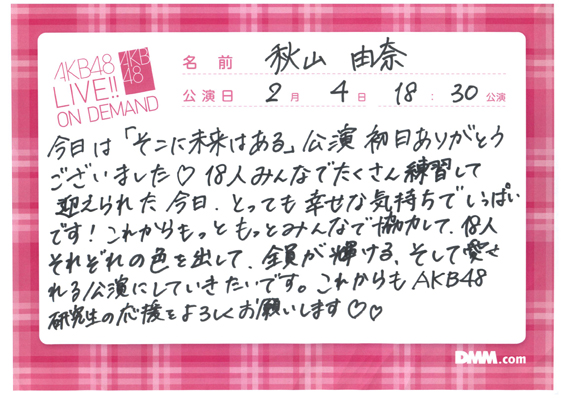 AKB48
LIVE!!
ON DEMAND
AKB
48
名前 秋山 由奈
公演日 2月 4日 18:30公演
今日は「そこに未来はある」公演 初日ありがとう
ございました♡ 18人みんなでたくさん練習して
迎えられた今日、とっても幸せな気持ちでいっぱい
です！これからもっともっとみんなで協力して、18人
それぞれの色を出して、全員が輝ける、そして愛さ
れる公演にしていきたいです。これからもAKB48
研究生の応援をよろしくお願いします♡♡
DMM.com